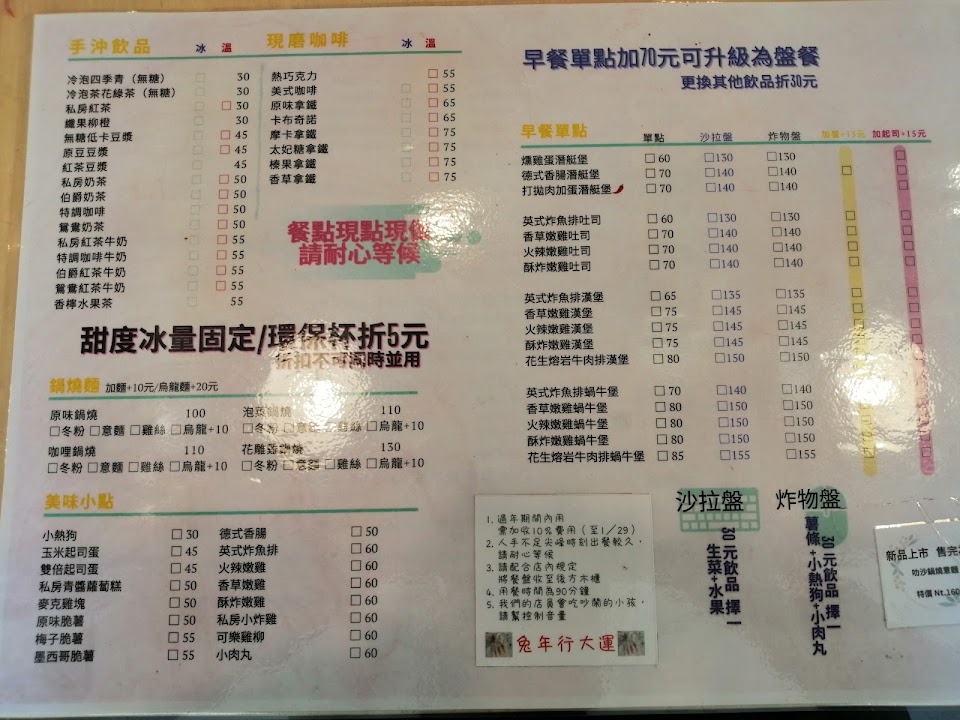 手沖飲品 冰 溫
冷泡四季青（無糖） □ 30
冷泡茶花綠茶（無糖） □ 30
私房紅茶 □ □ 30
纖果柳橙 □ 30
無糖低卡豆漿 □ □ 45
原豆豆漿 □ □ 45
紅茶豆漿 □ 45
私房奶茶 □ □ 50
伯爵奶茶 □ □ 50
特調咖啡 □ □ 50
鴛鴦奶茶 □ □ 50
私房紅茶牛奶 □ □ 55
特調咖啡牛奶 □ □ 55
伯爵紅茶牛奶 □ □ 55
鴛鴦紅茶牛奶 □ □ 55
香檸水果茶 □ 55
現磨咖啡 冰 溫
熱巧克力 □ 55
美式咖啡 □ □ 55
原味拿鐵 □ □ 65
卡布奇諾 □ □ 65
摩卡拿鐵 □ □ 75
太妃糖拿鐵 □ □ 75
榛果拿鐵 □ □ 75
香草拿鐵 □ □ 75
餐點現點現做
請耐心等候
甜度冰量固定/環保杯折5元
折扣不可同時並用
鍋燒麵 加麵+10元/烏龍麵+20元
原味鍋燒 100
□冬粉 □意麵 □雞絲 □烏龍+10
咖哩鍋燒 110
□冬粉 □意麵 □雞絲 □烏龍+10
泡菜鍋燒 110
□冬粉 □意麵 □雞絲 □烏龍+10
花雕雞鍋燒 130
□冬粉 □意麵 □雞絲 □烏龍+10
美味小點
小熱狗 □ 30
玉米起司蛋 □ 45
雙倍起司蛋 □ 45
私房青醬蘿蔔糕 □ 50
麥克雞塊 □ 50
原味脆薯 □ 50
梅子脆薯 □ 55
墨西哥脆薯 □ 55
德式香腸 □ 50
英式炸魚排 □ 60
火辣嫩雞 □ 60
香草嫩雞 □ 60
酥炸嫩雞 □ 60
私房小炸雞 □ 60
可樂雞柳 □ 60
小肉丸 □ 60
早餐單點加70元可升級為盤餐
更換其他飲品折30元
早餐單點 單點 沙拉盤 炸物盤 加蛋+15元 加起司+15元
燻雞蛋潛艇堡 □ 60 □130 □130 □
德式香腸潛艇堡 □ 70 □140 □140 □ □
打拋肉加蛋潛艇堡 □ 70 □140 □140 □
英式炸魚排吐司 □ 60 □130 □130 □ □
香草嫩雞吐司 □ 70 □140 □140 □ □
火辣嫩雞吐司 □ 70 □140 □140 □ □
酥炸嫩雞吐司 □ 70 □140 □140 □ □
英式炸魚排漢堡 □ 65 □135 □135 □ □
香草嫩雞漢堡 □ 75 □145 □145 □ □
火辣嫩雞漢堡 □ 75 □145 □145 □ □
酥炸嫩雞漢堡 □ 75 □145 □145 □ □
花生熔岩牛肉排漢堡 □ 80 □150 □150 □ □
英式炸魚排蝸牛堡 □ 70 □140 □140 □ □
香草嫩雞蝸牛堡 □ 80 □150 □150
火辣嫩雞蝸牛堡 □ 80 □150 □150
酥炸嫩雞蝸牛堡 □ 80 □150 □150 □
花生熔岩牛肉排蝸牛堡 □ 85 □155 □155 □ □
1. 過年期間內用
需加收10%費用（至1／29）
2. 人手不足尖峰時刻出餐較久，
請耐心等候
3. 請配合店內規定
將餐盤收至後方木櫃
4. 用餐時間為90分鐘
5. 我們的店員會吃吵鬧的小孩，
請幫控制音量
兔年行大運
沙拉盤
30元飲品 擇一
生菜+水果
炸物盤
30元飲品 擇一
薯條+小熱狗+小肉丸
新品上市 售完
叻沙鍋燒意麵
特價 Nt.160